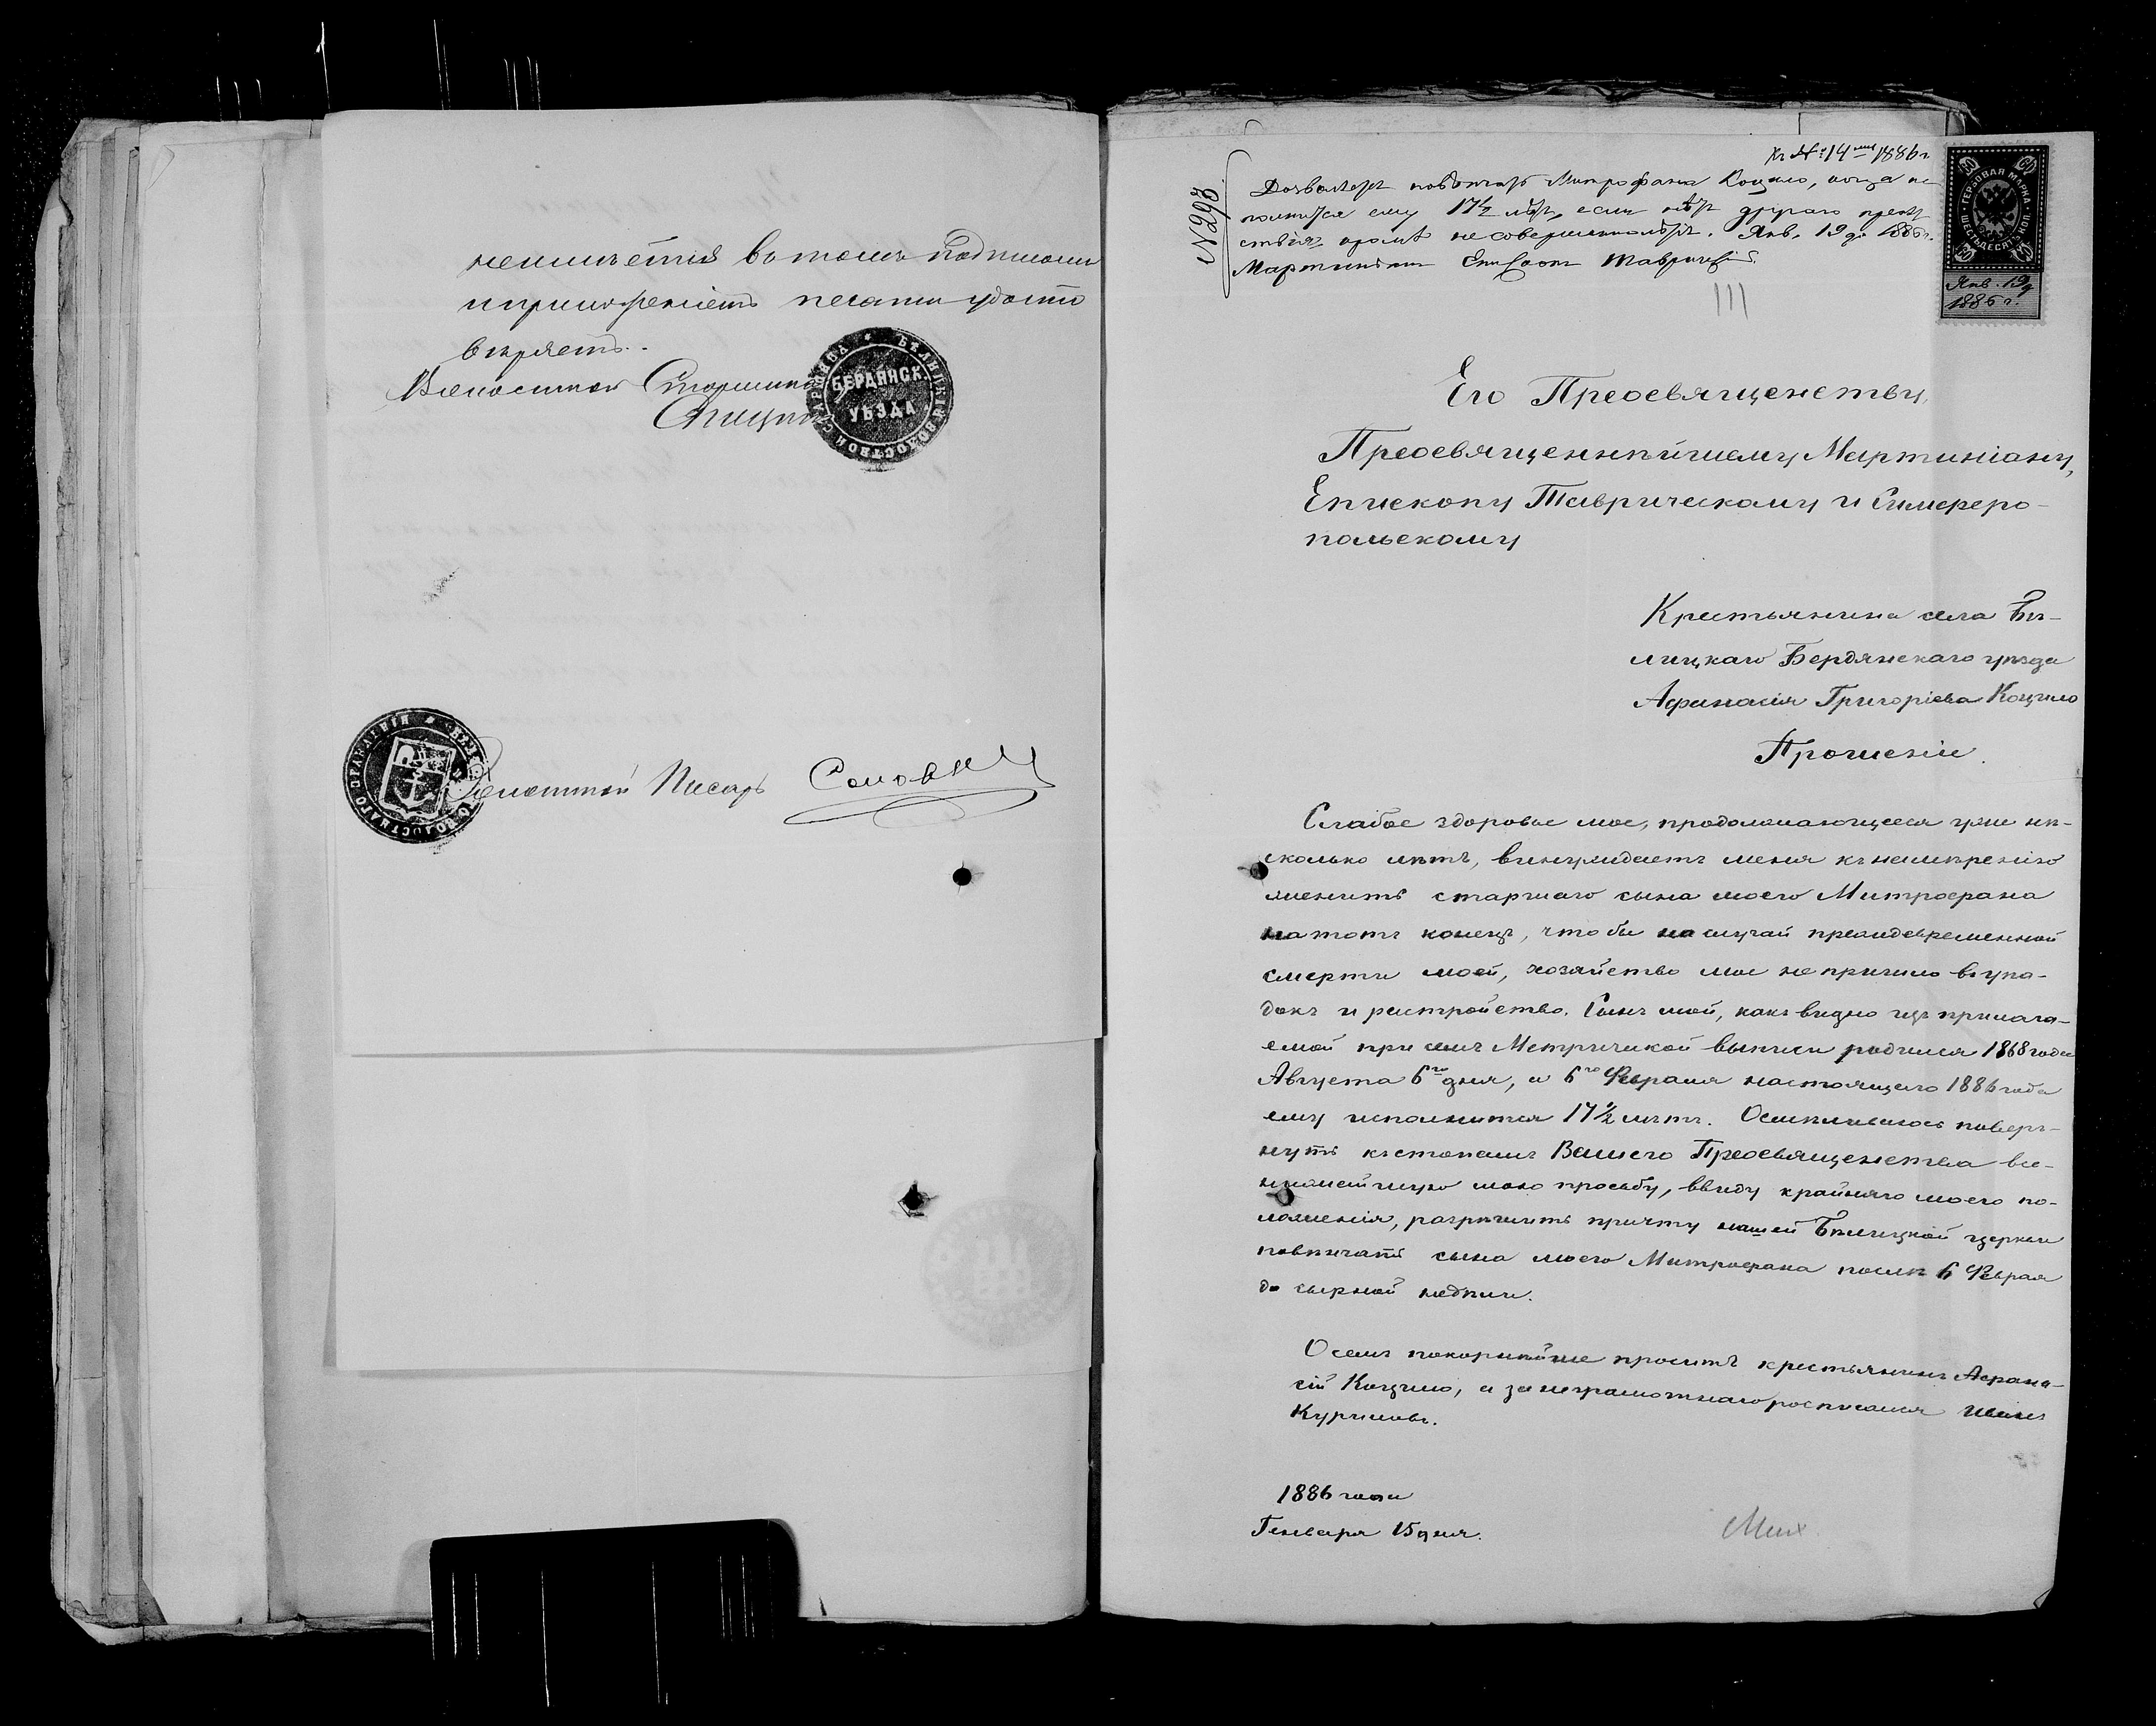 неимѣетсѧ въ томъ подписомъ
и приложеніемъ печати удосто
вѣряетъ.
Волостной Старшина
БѢЛИЦК. ВОЛОСТНОЙ СТАРШИНА
БЕРДЯНСК.
УѢЗДА
ВОЛОСТНАГО ПРАВЛЕНІЯ
Волостной Писарь
№ 298
1886 г.
Дозволяется повѣнчать Митрофана Коцыло, когда ис
полнится ему 17½ лѣтъ, если нѣтъ другаго препят
ствія, кромѣ несовершеннолѣтія. Янв. 19 д. 1886 г.
Мартиніанъ Епископъ Таврическій.
ГЕРБОВАЯ МАРКА
ШЕСТЬДЕСЯТЪ КОП.
60 60
60 60
Янв. 19 д
1886 г.
Его Преосвященству,
Преосвященнѣйшему Мартиніану,
Епископу Таврическому и Симферо-
польскому
Крестьянина села Бѣ-
лицкаго Бердянскаго уѣзда
Афанасія Григоріева Коцыло
Прошеніе.
Слабое здоровье мое, продолжающееся уже нѣ-
сколько лѣтъ, вынуждаетъ меня къ намѣренію
женить старшаго сына моего Митрофана
на тотъ конецъ, что бы на случай преждевременной
смерти моей, хозяйство мое не пришло въ упа-
докъ и растройство. Сынъ мой, какъ видно изъ прилага-
емой при семъ Метрической выписи родился 1868 года
Августа 6го дня, а 6го Февраля настоящаго 1886 года
ему исполнится 17½ лѣтъ. Осмѣливаюсь поверг-
нуть къ стопамъ Вашего Преосвященства все-
нижайшую мою просьбу, ввиду крайняго моего по-
ложенія, разрѣшить причту нашей Бѣлицкой церкви
повѣнчать сына моего Митрофана послѣ 6 Февраля
до сырной недѣли.
О семъ покорнѣйше проситъ крестьянинъ Афана-
сій Коцыло, а за неграмотнаго росписался Иванъ
Куриловъ.
1886 года
Генваря 15 дня.